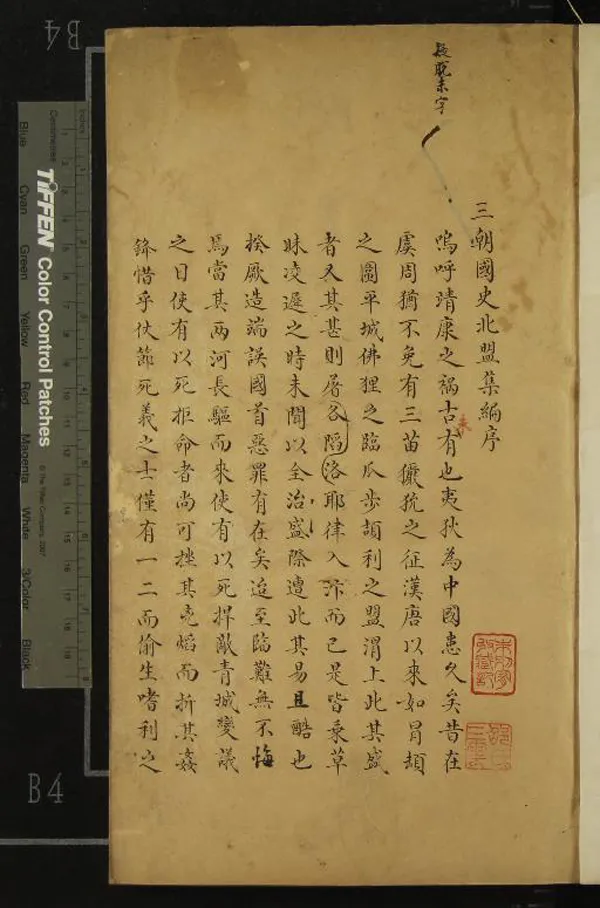 疑脫未字
三朝國史北盟集編序
嗚呼靖康之禍古有也夷狄為中國患久矣昔在
未
虞周猶不免有三苗玁狁之征漢唐以來如冒頓
之圍平城佛狸之臨瓜步頡利之盟渭上此其盛
者又其甚則屠各陷洛耶律入汴而已是皆乗草
昧凌遲之時未聞以全治盛際遭此其易且酷也
揆厥造端誤國首惡罪有在矣迨至臨難無不悔
焉當其兩河長驅而來使有以死捍敵青城變議
之日使有以死拒命者尚可挫其兇焰而折其姦
鋒惜乎仗節死義之士僅有一二而偷生嗜利之
B4
B4
TIFFEN Color Control Patches
© The Tiffen Company, 2007
Centimetres
Inches
Blue
Cyan
Green
Yellow
Red
Magenta
White
3/Color
Black